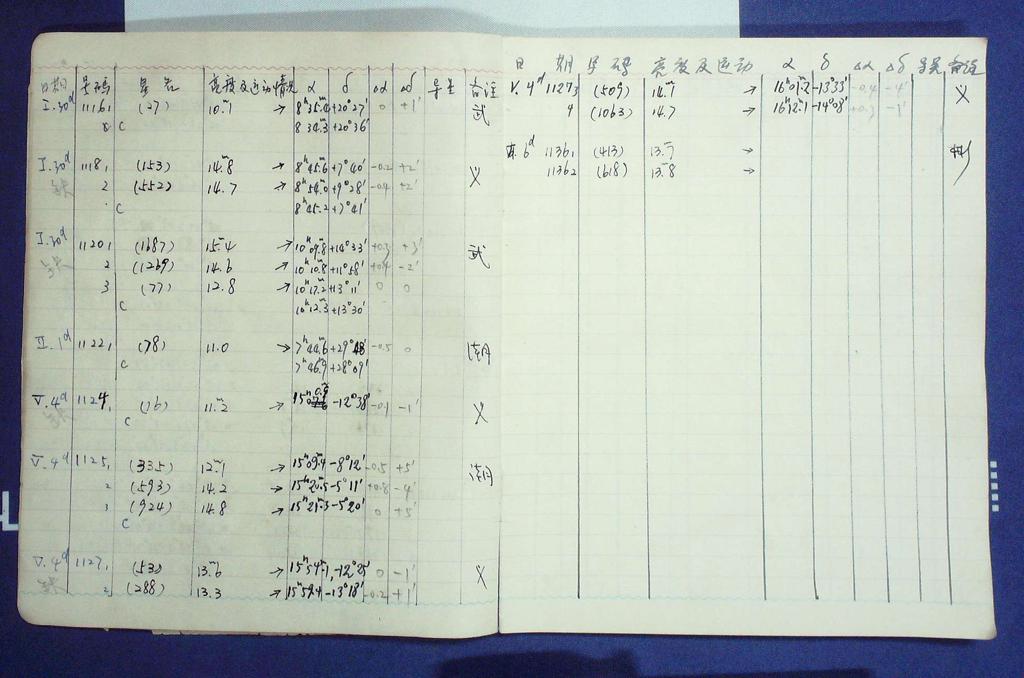 日期 号码 星名 亮度及运动情况 α δ Δα Δδ 导星 备注
I.30d 1116₁ (27) 10.ᵐ1 → 8ʰ35.ᵐ4 +20°27′ 0 +1′ 武
C 8 34.3 +20°36′
I.30d 1118₁ (153) 14.8 → 8ʰ45.ᵐ6 +7°40′ -0.2 +2′ 义
2 (552) 14.7 → 8ʰ54.ᵐ0 +9°28′ -0.4 +2′
C 8ʰ45.2 +7°41′
I.30d 1120₁ (1687) 15.ᵐ4 → 10ʰ09.ᵐ8 +14°33′ +0.3 +3′ 武
2 (1269) 14.6 → 10ʰ10.ᵐ8 +11°58′ -2′
3 (77) 12.8 → 10ʰ17.ᵐ2 +13°11′ 0 0
C 10ʰ12.ᵐ3 +13°30′
II.1d 1122₁ (78) 11.0 → 7ʰ44.ᵐ6 +29°48′ -0.5 0
C 7ʰ46.ᵐ9 +28°09′
V.4d 1124₁ (16) 11.ᵐ2 → -12°38′ -0.1 -1′ 义
C
V.4d 1125₁ (335) 12.ᵐ1 → 15ʰ09.ᵐ4 -8°12′ -0.5 +5′
2 (593) 14.2 → 15ʰ20.ᵐ5 -5°11′ +0.8 -4′
3 (924) 14.8 → 15ʰ21.ᵐ3 -5°20′ 0 +5′
C
V.4d 1127₁ (53) 13.ᵐ6 → 15ʰ54ᵐ.1 -12°25′ 0 -1′ 义
2 (288) 13.3 → 15ʰ59.4 -13°18′ -0.2 +1′
日期 星码 亮度及运动 α δ Δα Δδ 导星 备注
V.4d 1127₃ (509) 14.ᵐ7 → 16ʰ01.ᵐ2 -13°33′ -0.4 -4′ 义
4 (1063) 14.7 → 16ʰ12.ᵐ1 -14°08′ +0.3 -1′
6d 1136₁ (413) 13.ᵐ7 → 彬
1136₂ (618) 13.8 →